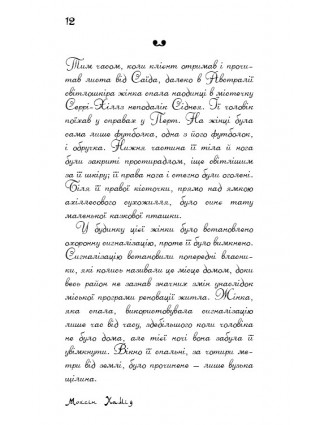 12
Тим часом, коли клієнт отримав і прочи-
тав листа від Саїда, далеко в Австралії
світлошкіра жінка спала наодинці в містечку
Серрі-Хіллз неподалік Сіднея. Її чоловік
поїхав у справах у Перт. На жінці була
сама лише футболка, одна з його футболок,
і обручка. Нижня частина її тіла й нога
були закриті простирадлом, іще світлішим
за її шкіру; її права нога і стегно були оголені.
Біля її правої кісточки, прямо над ямкою
ахіллесового сухожилля, було синє тату
маленької казкової пташки.
У будинку цієї жінки було встановлено
охоронну сигналізацію, проте її було вимкнено.
Сигналізацію встановили попередні власни-
ки, які колись називали це місце домом, доки
весь район не зазнав значних змін унаслідок
міської програми реновації житла. Жінка,
яка спала, використовувала сигналізацію
лише час від часу, здебільшого коли чоловіка
не було дома, але тієї ночі вона забула її
увімкнути. Вікно її спальні, за чотири ме-
три від землі, було прочинене – лише вузька
щілина.
Мохсін Хамід